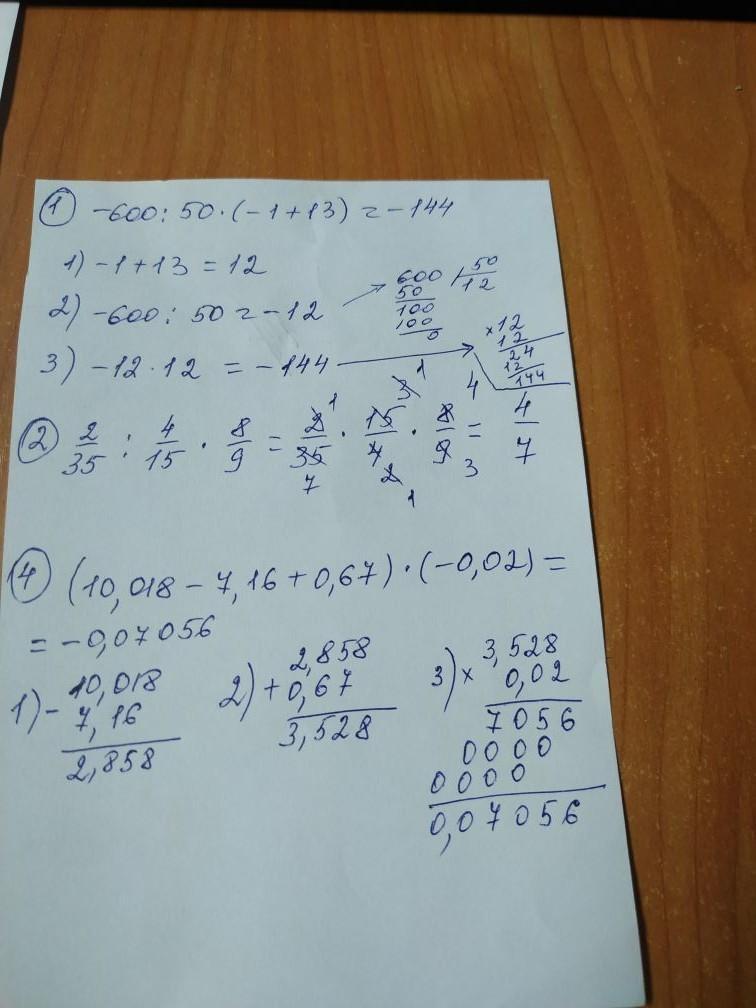 ① -600 : 50 · (-1 + 13) = -144
1) -1 + 13 = 12
2) -600 : 50 = -12
600 | 50
50 12
100
100
0
3) -12 · 12 = -144
×12
12
24
12
144
② 2/35 : 4/15 · 8/9 = 2/35 · 15/4 · 8/9 = 4/7
1 3 1 4
7 2 1 3
④ (10,018 - 7,16 + 0,67) · (-0,02) =
= -0,07056
1) - 10,018
7,16
2,858
2) + 2,858
0,67
3,528
3) × 3,528
0,02
7056
0000
0000
0,07056